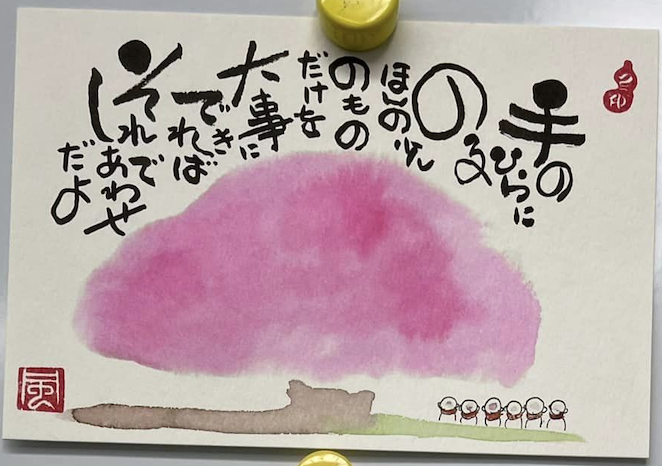 手のひらに
のる
ほんの少し
のもの
だけを
大事に
できれば
それで
しあわせ
だよ
風